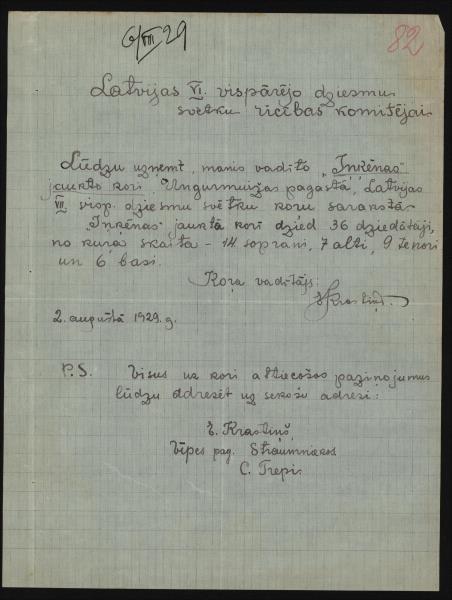 6/VIII 29
82
Latvijas VI. vispārējo dziesmu
svētku rīcības komitējai.
Lūdzu uzņemt, manis vadīto „Inķēnas"
jaukto kori, Ungurmuižas pagastā, Latvijas
VII visp. dziesmu svētku koru sarakstā.
„Inķēnas" jauktā korī dzied 36 dziedātāji,
no kuŗa skaita - 14 soprani, 7 alti, 9 tenori
un 6 basi.
Koŗa vadītājs:
E. Krastiņš.
2. augustā 1929. g.
P.S. Visus uz kori attiecošos paziņojumus
lūdzu adresēt uz sekošu adresi:
E. Krastiņš,
Vīpes pag.
C. Trepi.